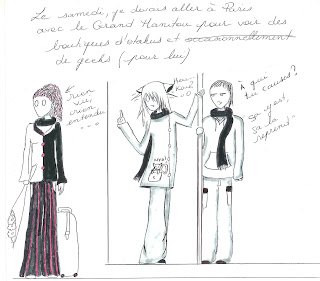 Le samedi, je devais aller à Paris
avec le Grand Manitou pour voir des
boutiques d'otakus et occasionnellement
de geeks (-pour lui)
rien
vu,
rien
entendu
...
À qui
tu causes?
ça y est,
ça la
reprend